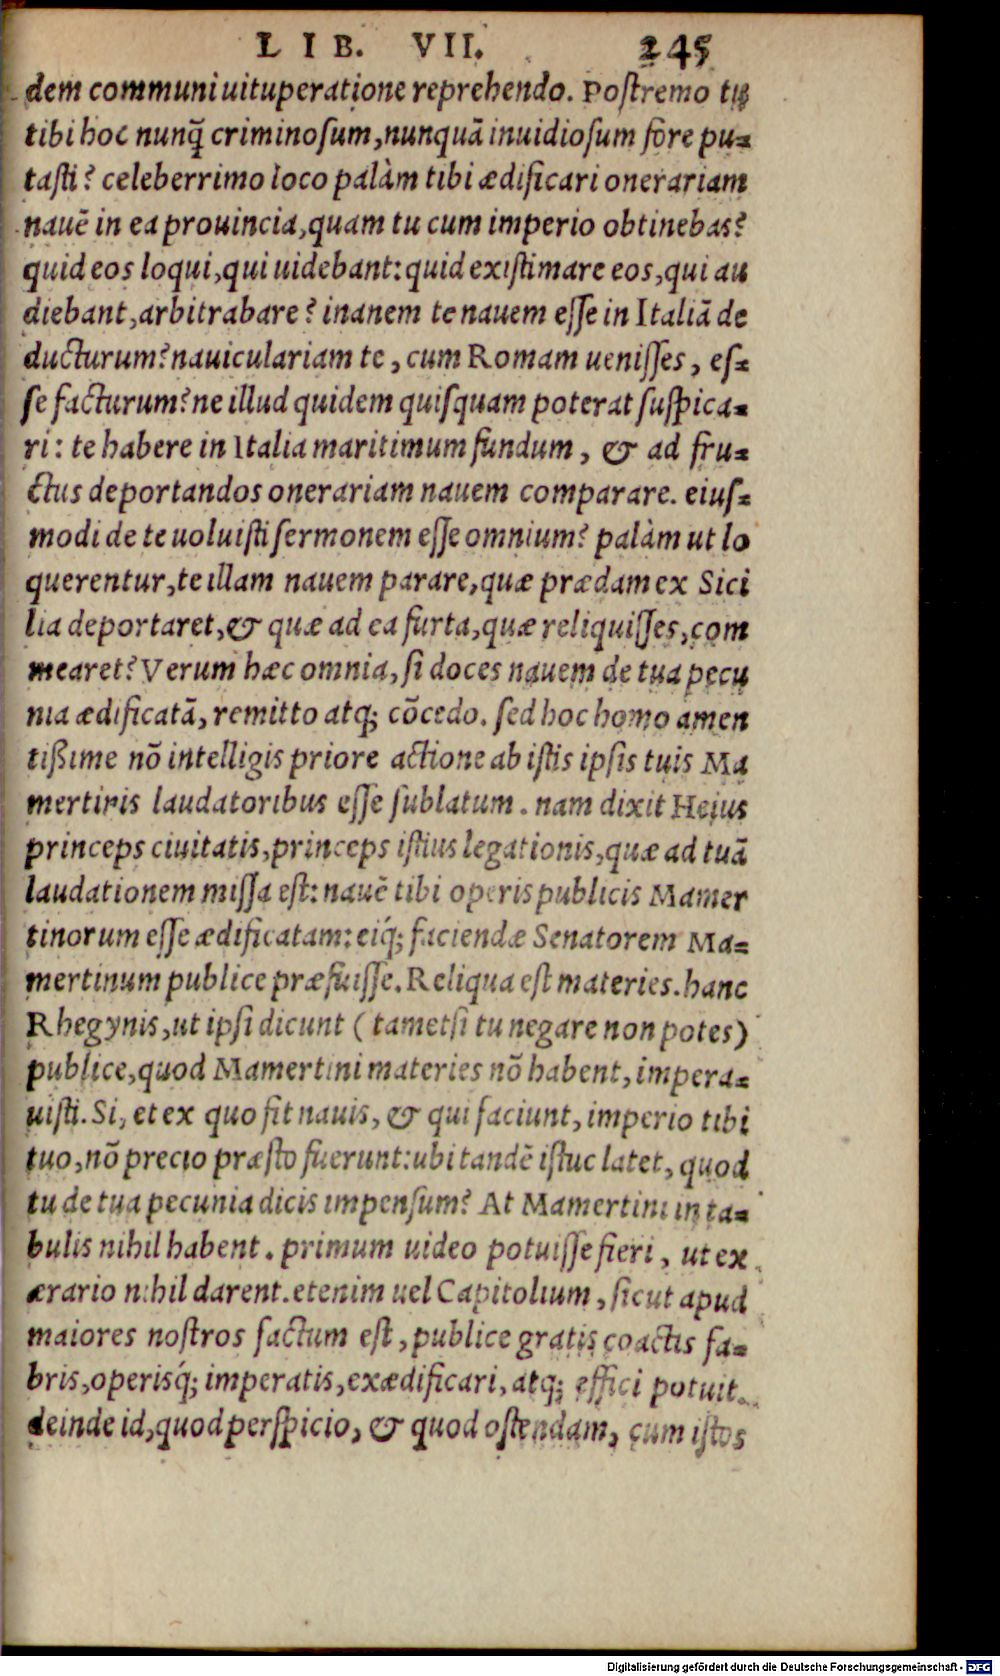 LIB. VII. 245
dem communi uituperatione reprehendo. Postremo tu
tibi hoc nunq̃ criminosum, nunquã inuidiosum fore pu-
tasti? celeberrimo loco palàm tibi ædificari onerariam
nauẽ in ea prouincia, quam tu cum imperio obtinebas?
quid eos loqui, qui uidebant: quid existimare eos, qui au
diebant, arbitrabare? inanem te nauem esse in Italiã de
ducturum? nauiculariam te, cum Romam uenisses, es-
se facturum? ne illud quidem quisquam poterat suspica-
ri: te habere in Italia maritimum fundum, & ad fru-
ctus deportandos onerariam nauem comparare. eius-
modi de te uoluisti sermonem esse omnium? palàm ut lo
querentur, te illam nauem parare, quæ prædam ex Sici
lia deportaret, & quæ ad ea furta, quæ reliquisses, com
mearet? Verum hæc omnia, si doces nauem de tua pecu
nia ædificatã, remitto atq; cõcedo. sed hoc homo amen
tißime nõ intelligis priore actione ab istis ipsis tuis Ma
mertinis laudatoribus esse sublatum. nam dixit Heius
princeps ciuitatis, princeps istius legationis, quæ ad tuã
laudationem missa est: nauẽ tibi operis publicis Mamer
tinorum esse ædificatam: eiq́; faciendæ Senatorem Ma-
mertinum publice præfuisse. Reliqua est materies. hanc
Rhegynis, ut ipsi dicunt (tametsi tu negare non potes)
publice, quod Mamertini materies nõ habent, impera-
uisti. Si, et ex quo fit nauis, & qui faciunt, imperio tibi
tuo, nõ precio præsto fuerunt: ubi tandẽ istuc latet, quod
tu de tua pecunia dicis impensum? At Mamertini in ta-
bulis nihil habent. primum uideo potuisse fieri, ut ex
ærario nihil darent. etenim uel Capitolium, sicut apud
maiores nostros factum est, publice gratis coactis fa-
bris, operisq́; imperatis, exædificari, atq; effici potuit.
deinde id, quod perspicio, & quod ostendam, cum istos
Digitalisierung gefördert durch die Deutsche Forschungsgemeinschaft - DFG